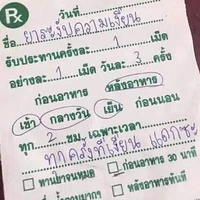 Rx วันที่
ชื่อ ยาระงับความเงี่ยน
รับประทานครั้งละ 1 เม็ด
อย่างละ 1 เม็ด วันละ 3 ครั้ง
ก่อนอาหาร หลังอาหาร
เช้า กลางวัน เย็น ก่อนนอน
ทุก 2 ชม. เฉพาะเวลา
ทุกครั้งที่เงี่ยน แดกซะ
ทานยาจนหมด ก่อนอาหาร 30 นาที
ดื่มน้ำมากๆ หลังอาหารทันที